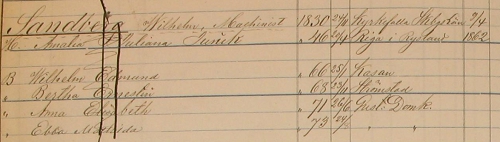 Sandberg Wilhelm, Machinist 1830 24/6 Kyrkefalla Skbg Län 2/4
H. Amalia Juliana " 46 22/4 Riga i Ryssland 1862
B Wilhelm Edmund " 66 25/1 Kasan
" Bertha Ernestin " 68 23/9 Strömstad
" Anna Elisabeth " 71 26/6 Gust: Domk.
" Ebba Mathilda " 73 " "